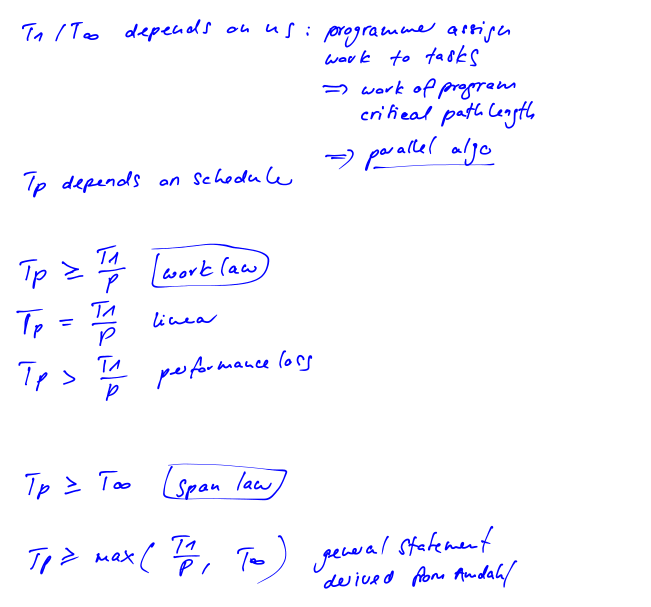 T1 / T∞ depends on us : programmer assign
work to tasks
⇒ work of program
critical path length
⇒ parallel algo
Tp depends on schedule
Tp ≥ T1/P work law
Tp = T1/P linear
Tp > T1/P performance loss
Tp ≥ T∞ span law
Tp ≥ max( T1/P, T∞ ) general statement
derived from Amdahl